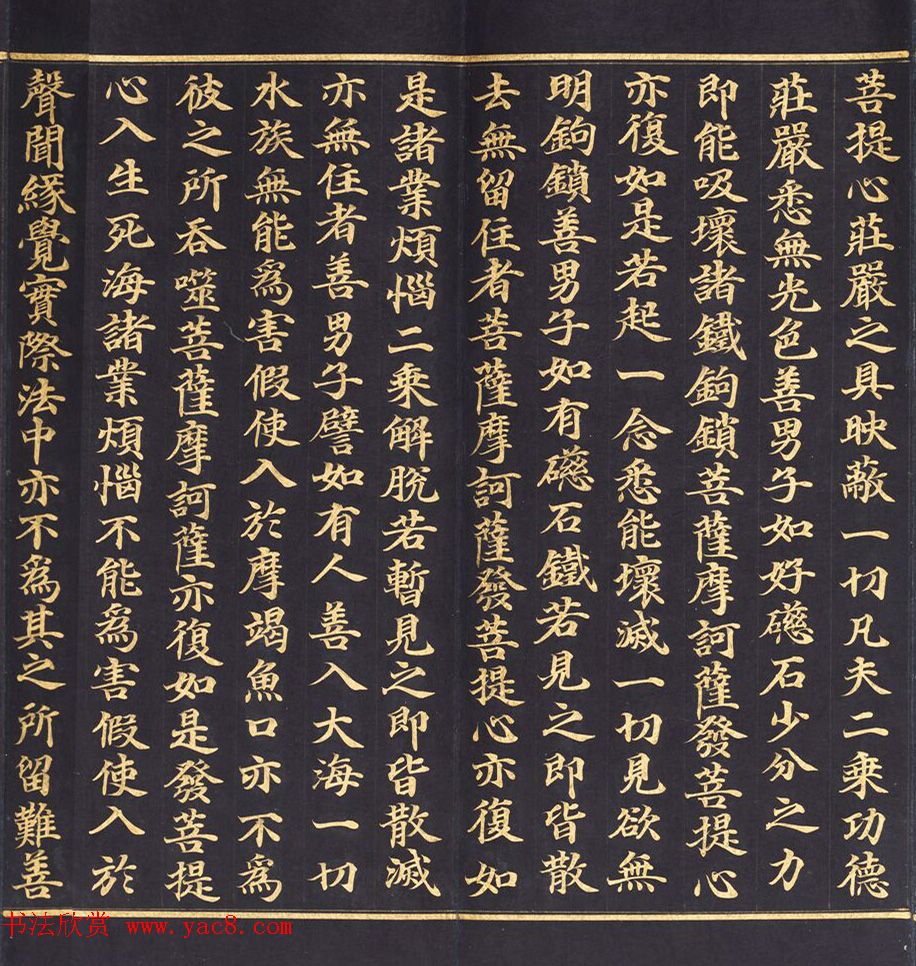 菩提心莊嚴之具映蔽一切凡夫二乘功德
莊嚴悉無光色善男子如好礠石少分之力
即能吸壞諸鐵鉤鎖菩薩摩訶薩發菩提心
亦復如是若起一念悉能壞滅一切見欲無
明鉤鎖善男子如有礠石鐵若見之即皆散
去無留住者菩薩摩訶薩發菩提心亦復如
是諸業煩惱二乘解脫若暫見之即皆散滅
亦無住者善男子譬如有人善入大海一切
水族無能為害假使入於摩竭魚口亦不為
彼之所吞噬菩薩摩訶薩亦復如是發菩提
心入生死海諸業煩惱不能為害假使入於
聲聞緣覺實際法中亦不為其之所留難善
书法欣赏 www.yac8.com